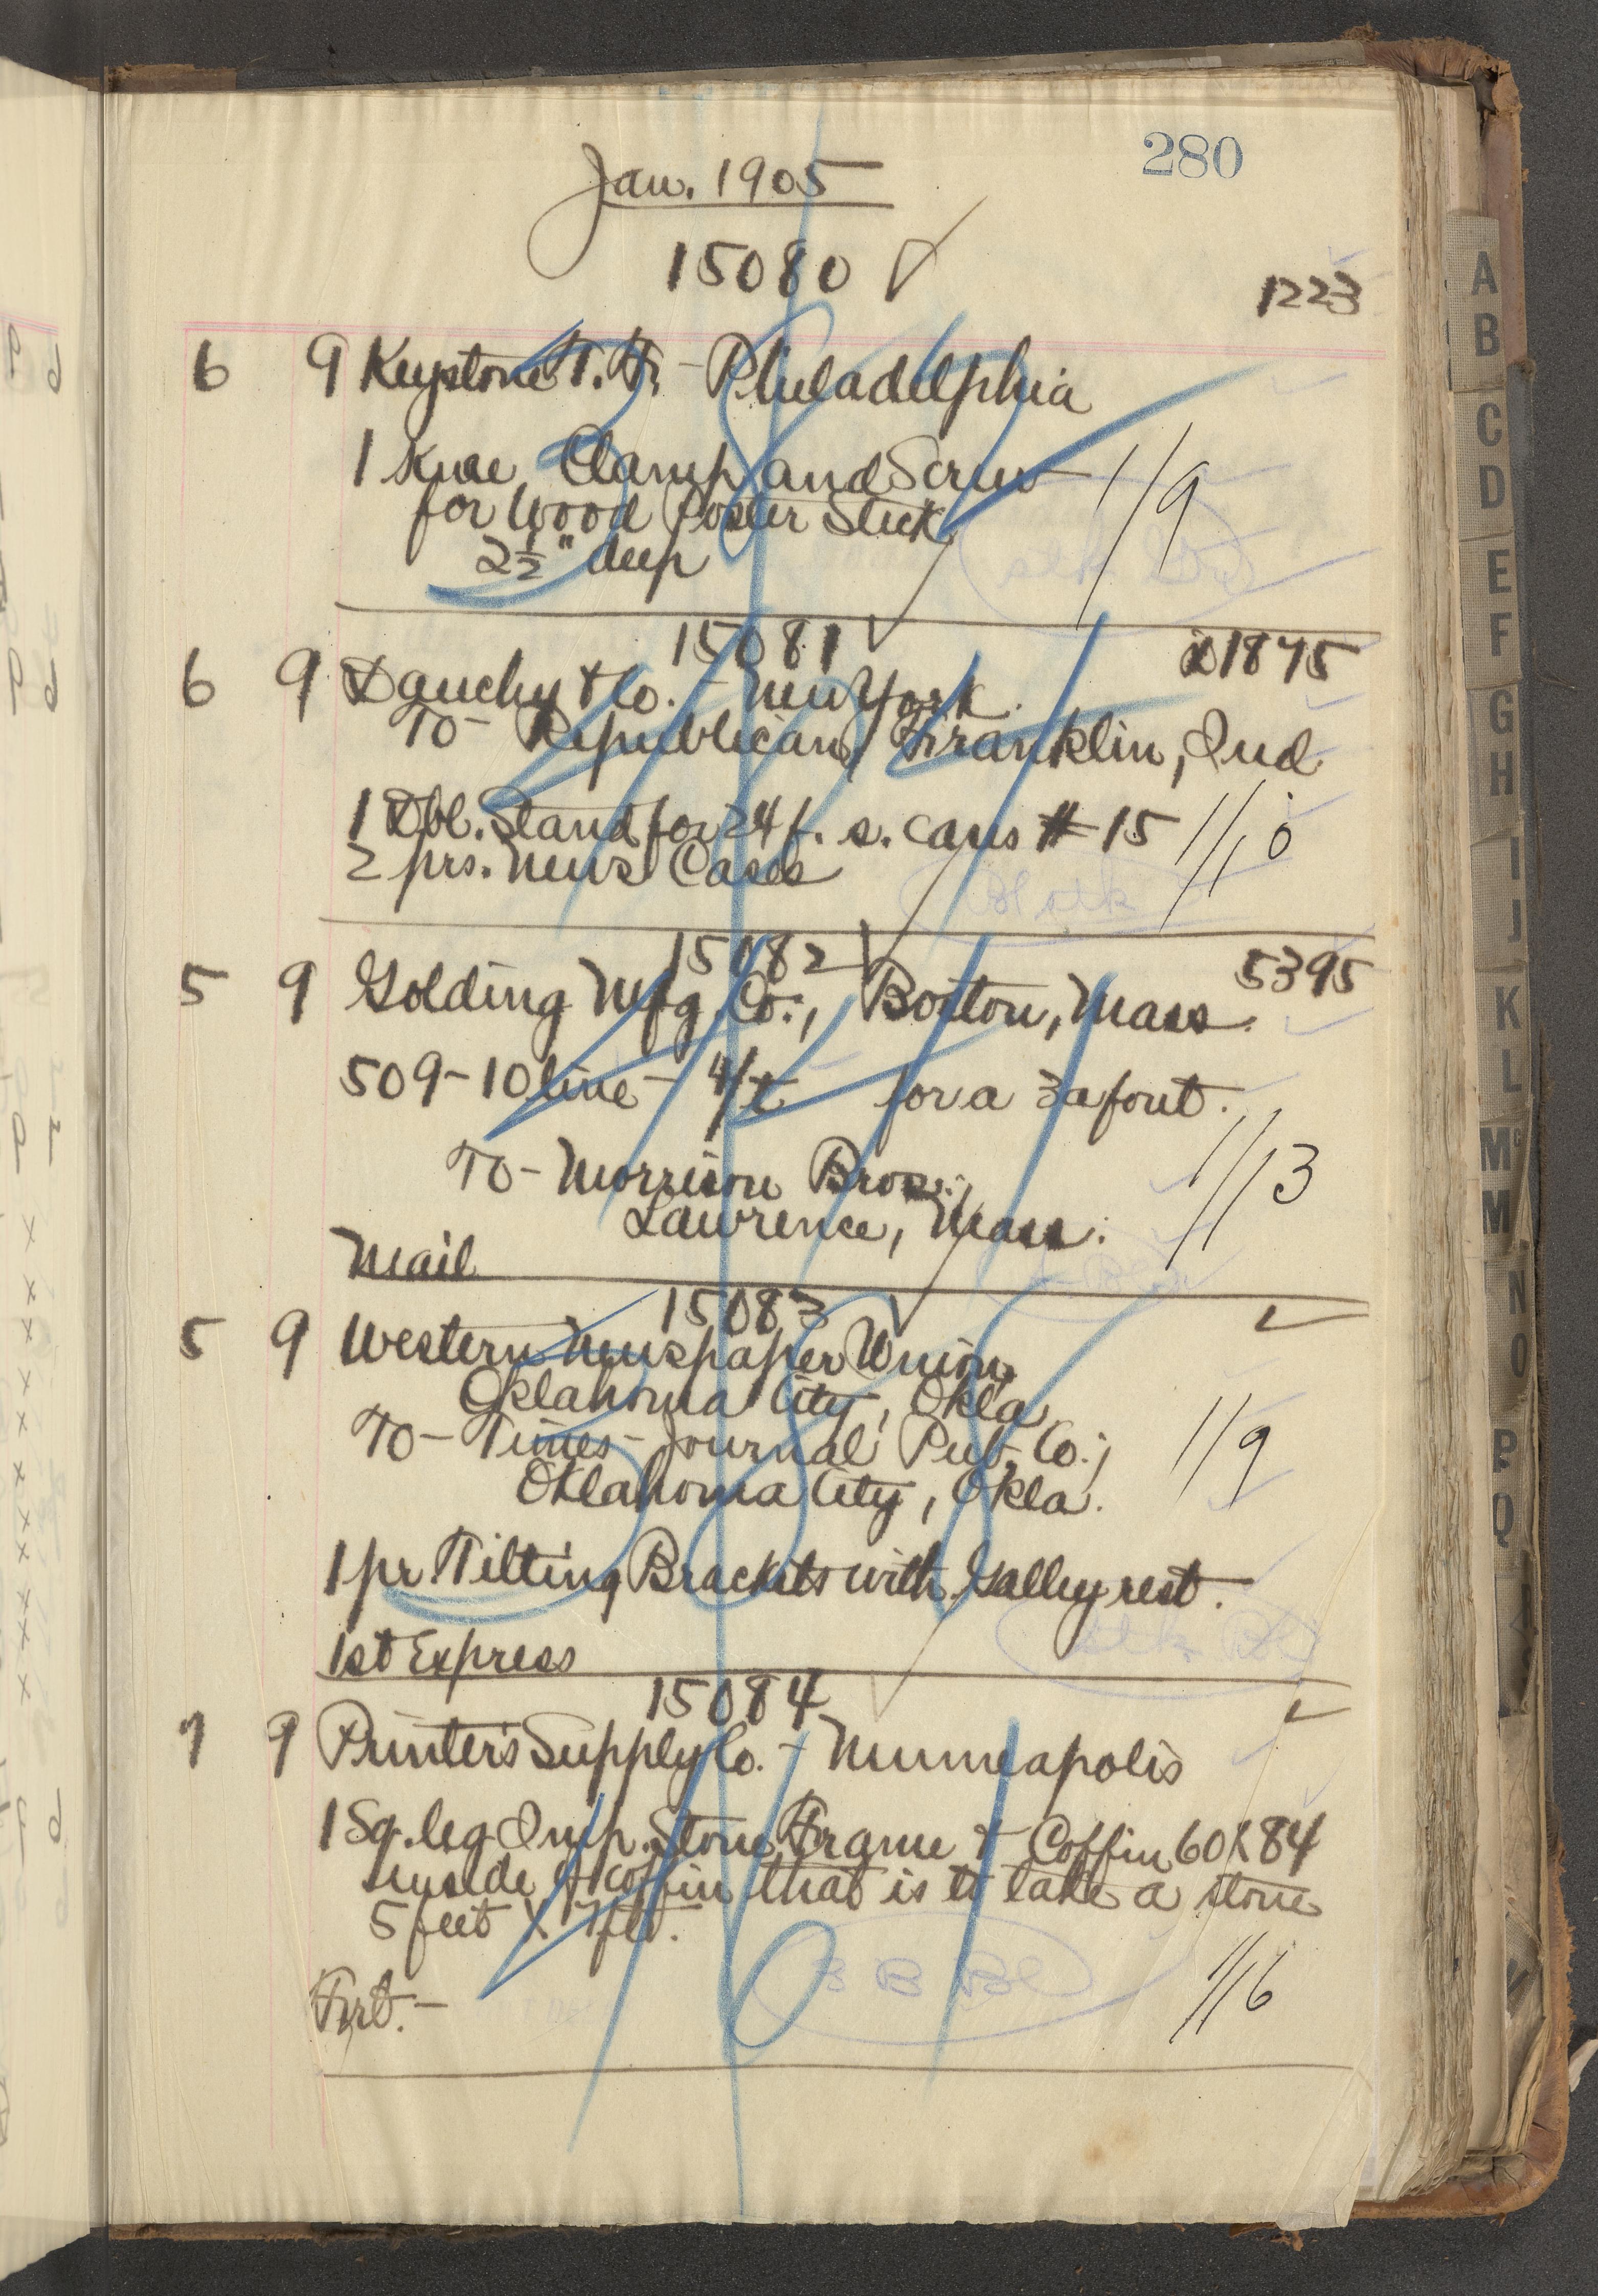 280
Jan. 1905
15080 ✓
1223
6 9 Keystone T. F. - Philadelphia
1 Knee Clamp and Screw
for Wood Poster Stick
2½" deep
1/9
15081
D1875
6 9 Dauchy & Co. - New York.
To - Republican, Franklin, Ind
1 Dbl. Stand for 24 f. s. cases # 15
2 prs. News Cases
1/10
15082
5395
5 9 Golding Mfg. Co., Boston, Mass.
509 - 10 line - 4/t for a 3a font.
To - Morrison Bros.,
Lawrence, Mass.
1/13
Mail
15083
5 9 Western Newspaper Union,
Oklahoma City, Okla
To - Times - Journal Pub. Co.,
Oklahoma City, Okla.
1/9
1 pr. Tilting Brackets with Galley rest.
1st Express
15084
7 9 Printer's Supply Co. - Minneapolis
1 Sq. leg Imp. Stone Frame & Coffin 60 X 84
inside of coffin that is to take a stone
5 feet X 7 ft.
B B Bl
1/16
Frt. -
A
B
C
D
E
F
G
H
I
J
K
L
Mc
M
N
O
P
Q